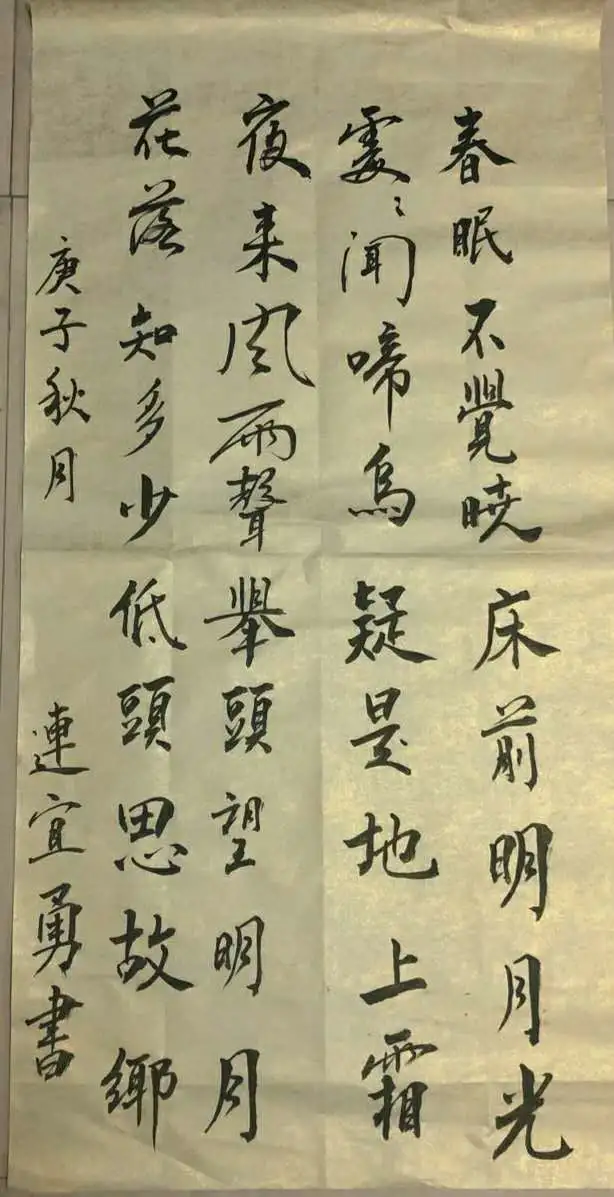 春眠不覺曉床前明月光
處〻聞啼鳥疑是地上霜
夜来風雨聲舉頭望明月
花落知多少低頭思故鄉
庚子秋月
連宜勇書